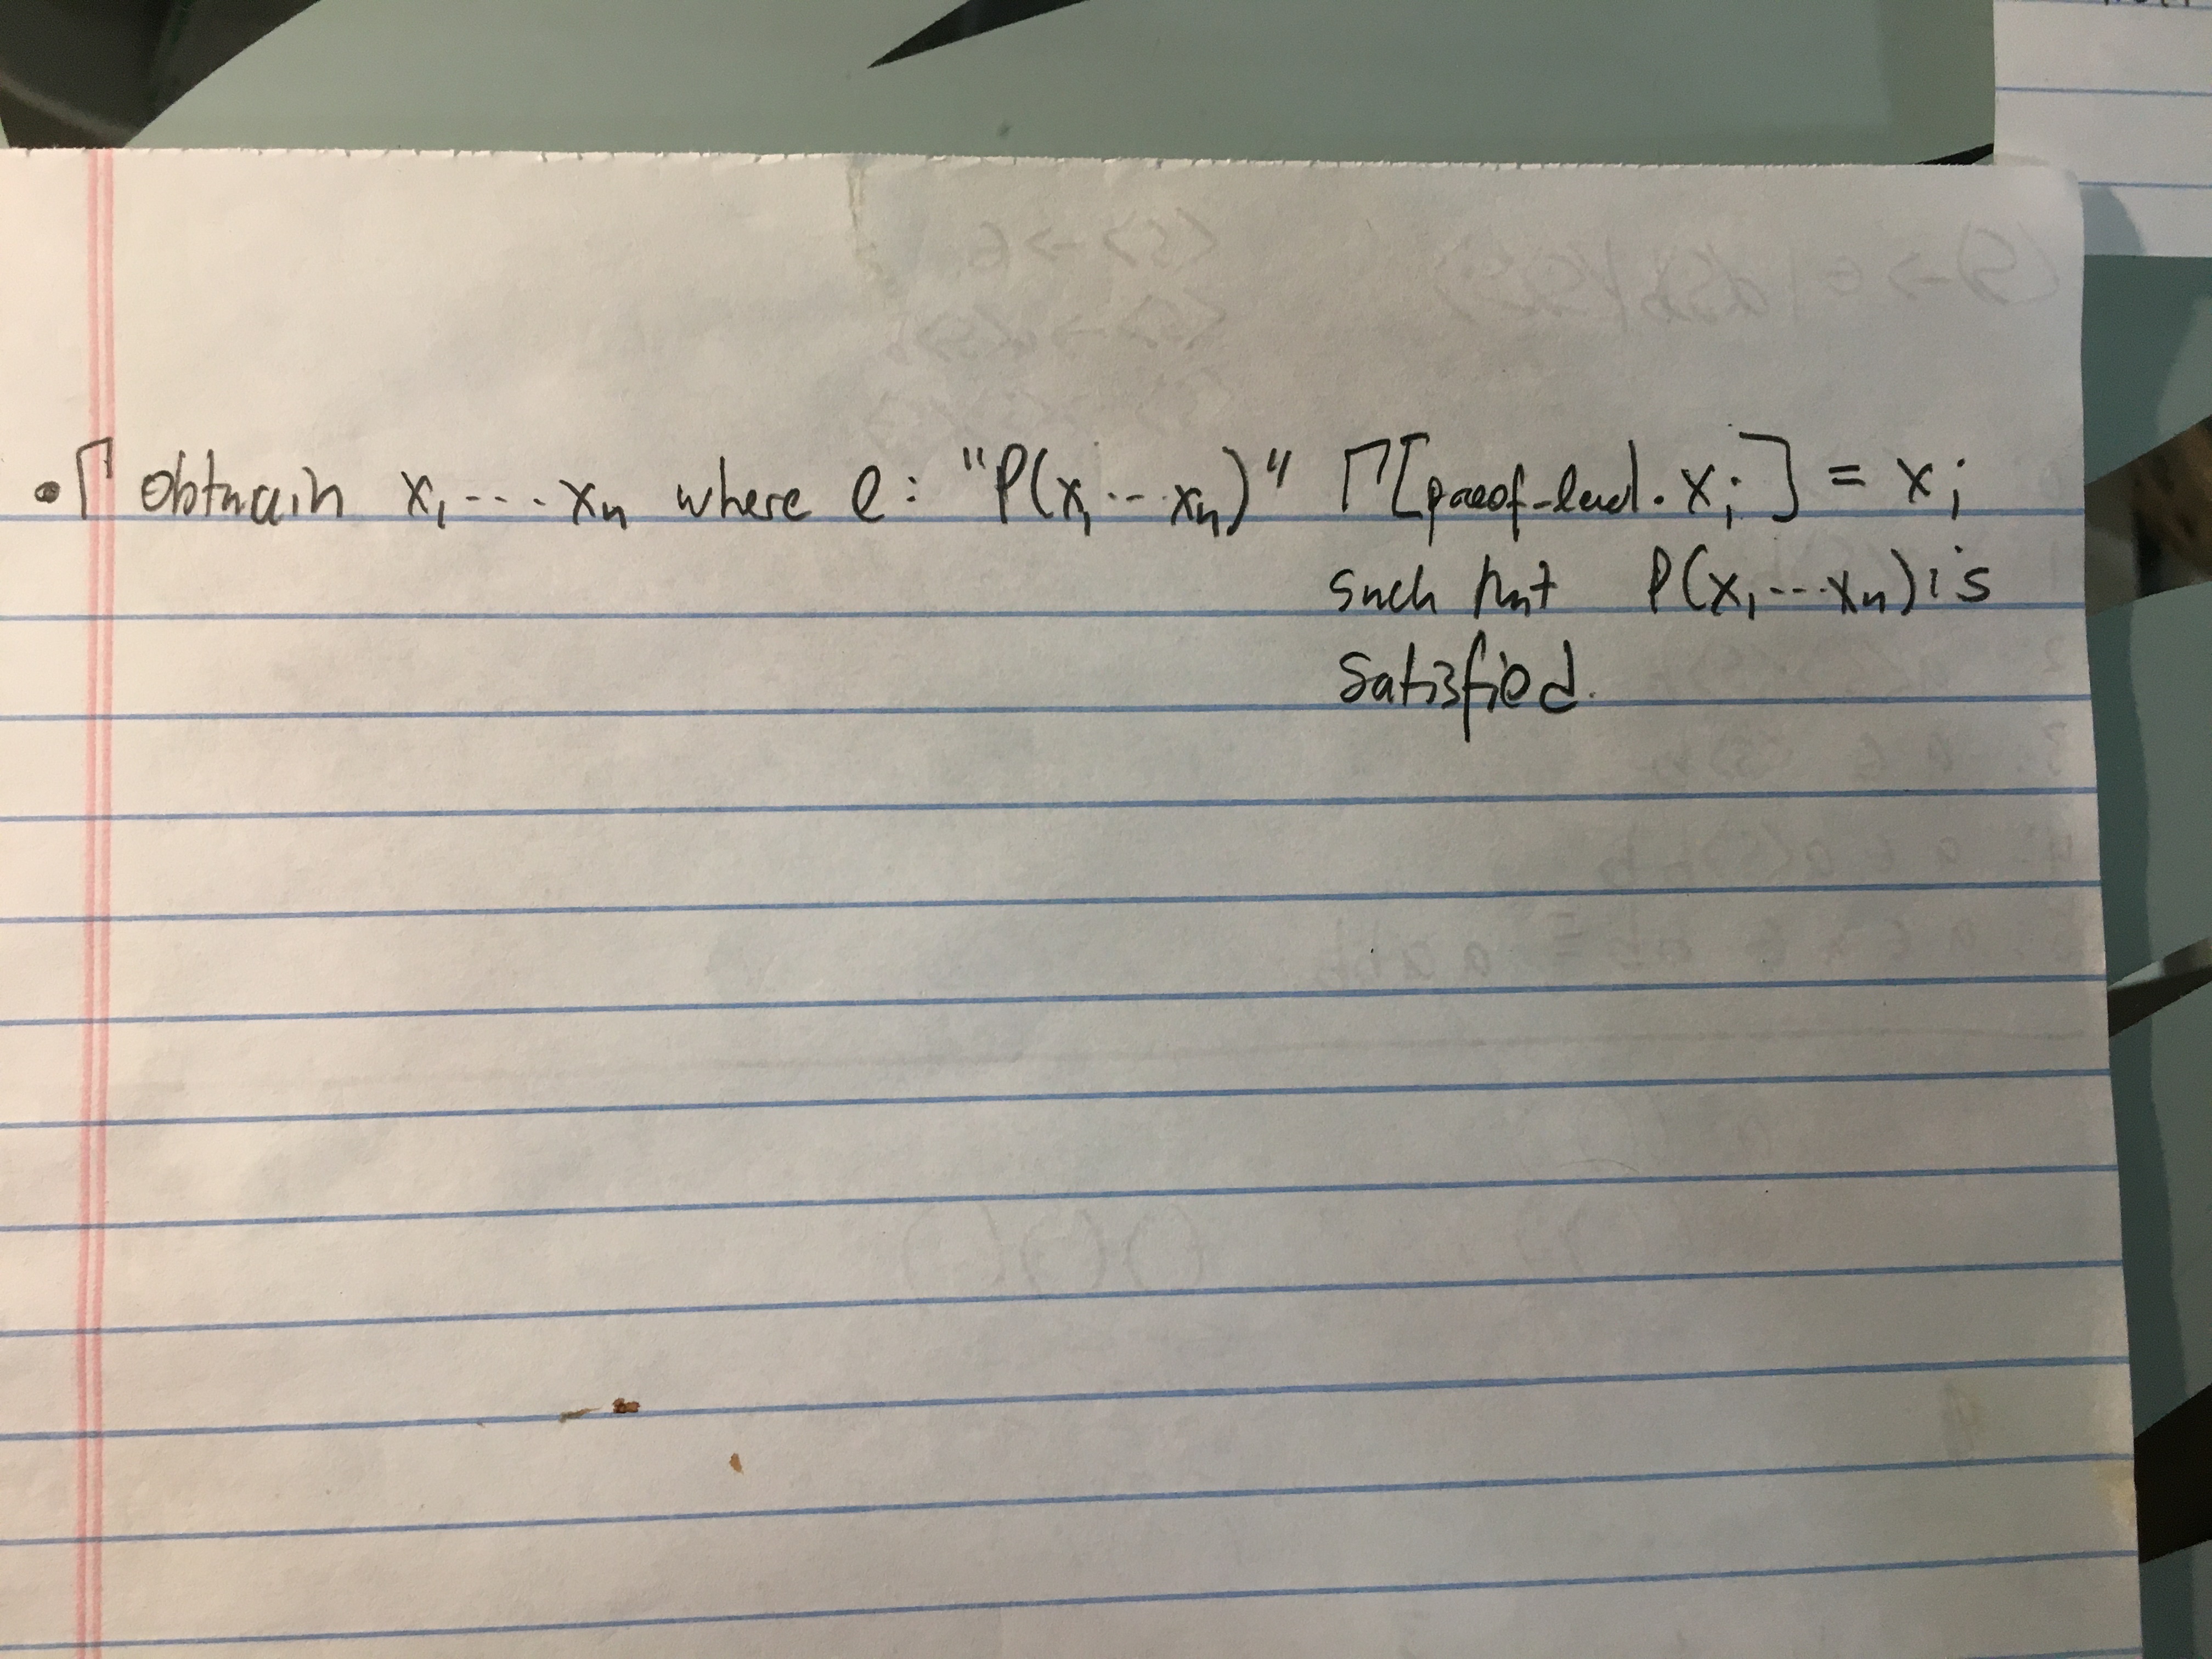 • Γ obtain x₁ ---- xₙ where l: "P(x₁ --- xₙ)" Γ[proof-level. xᵢ] = xᵢ
such that P(x₁ --- xₙ) is
satisfied.